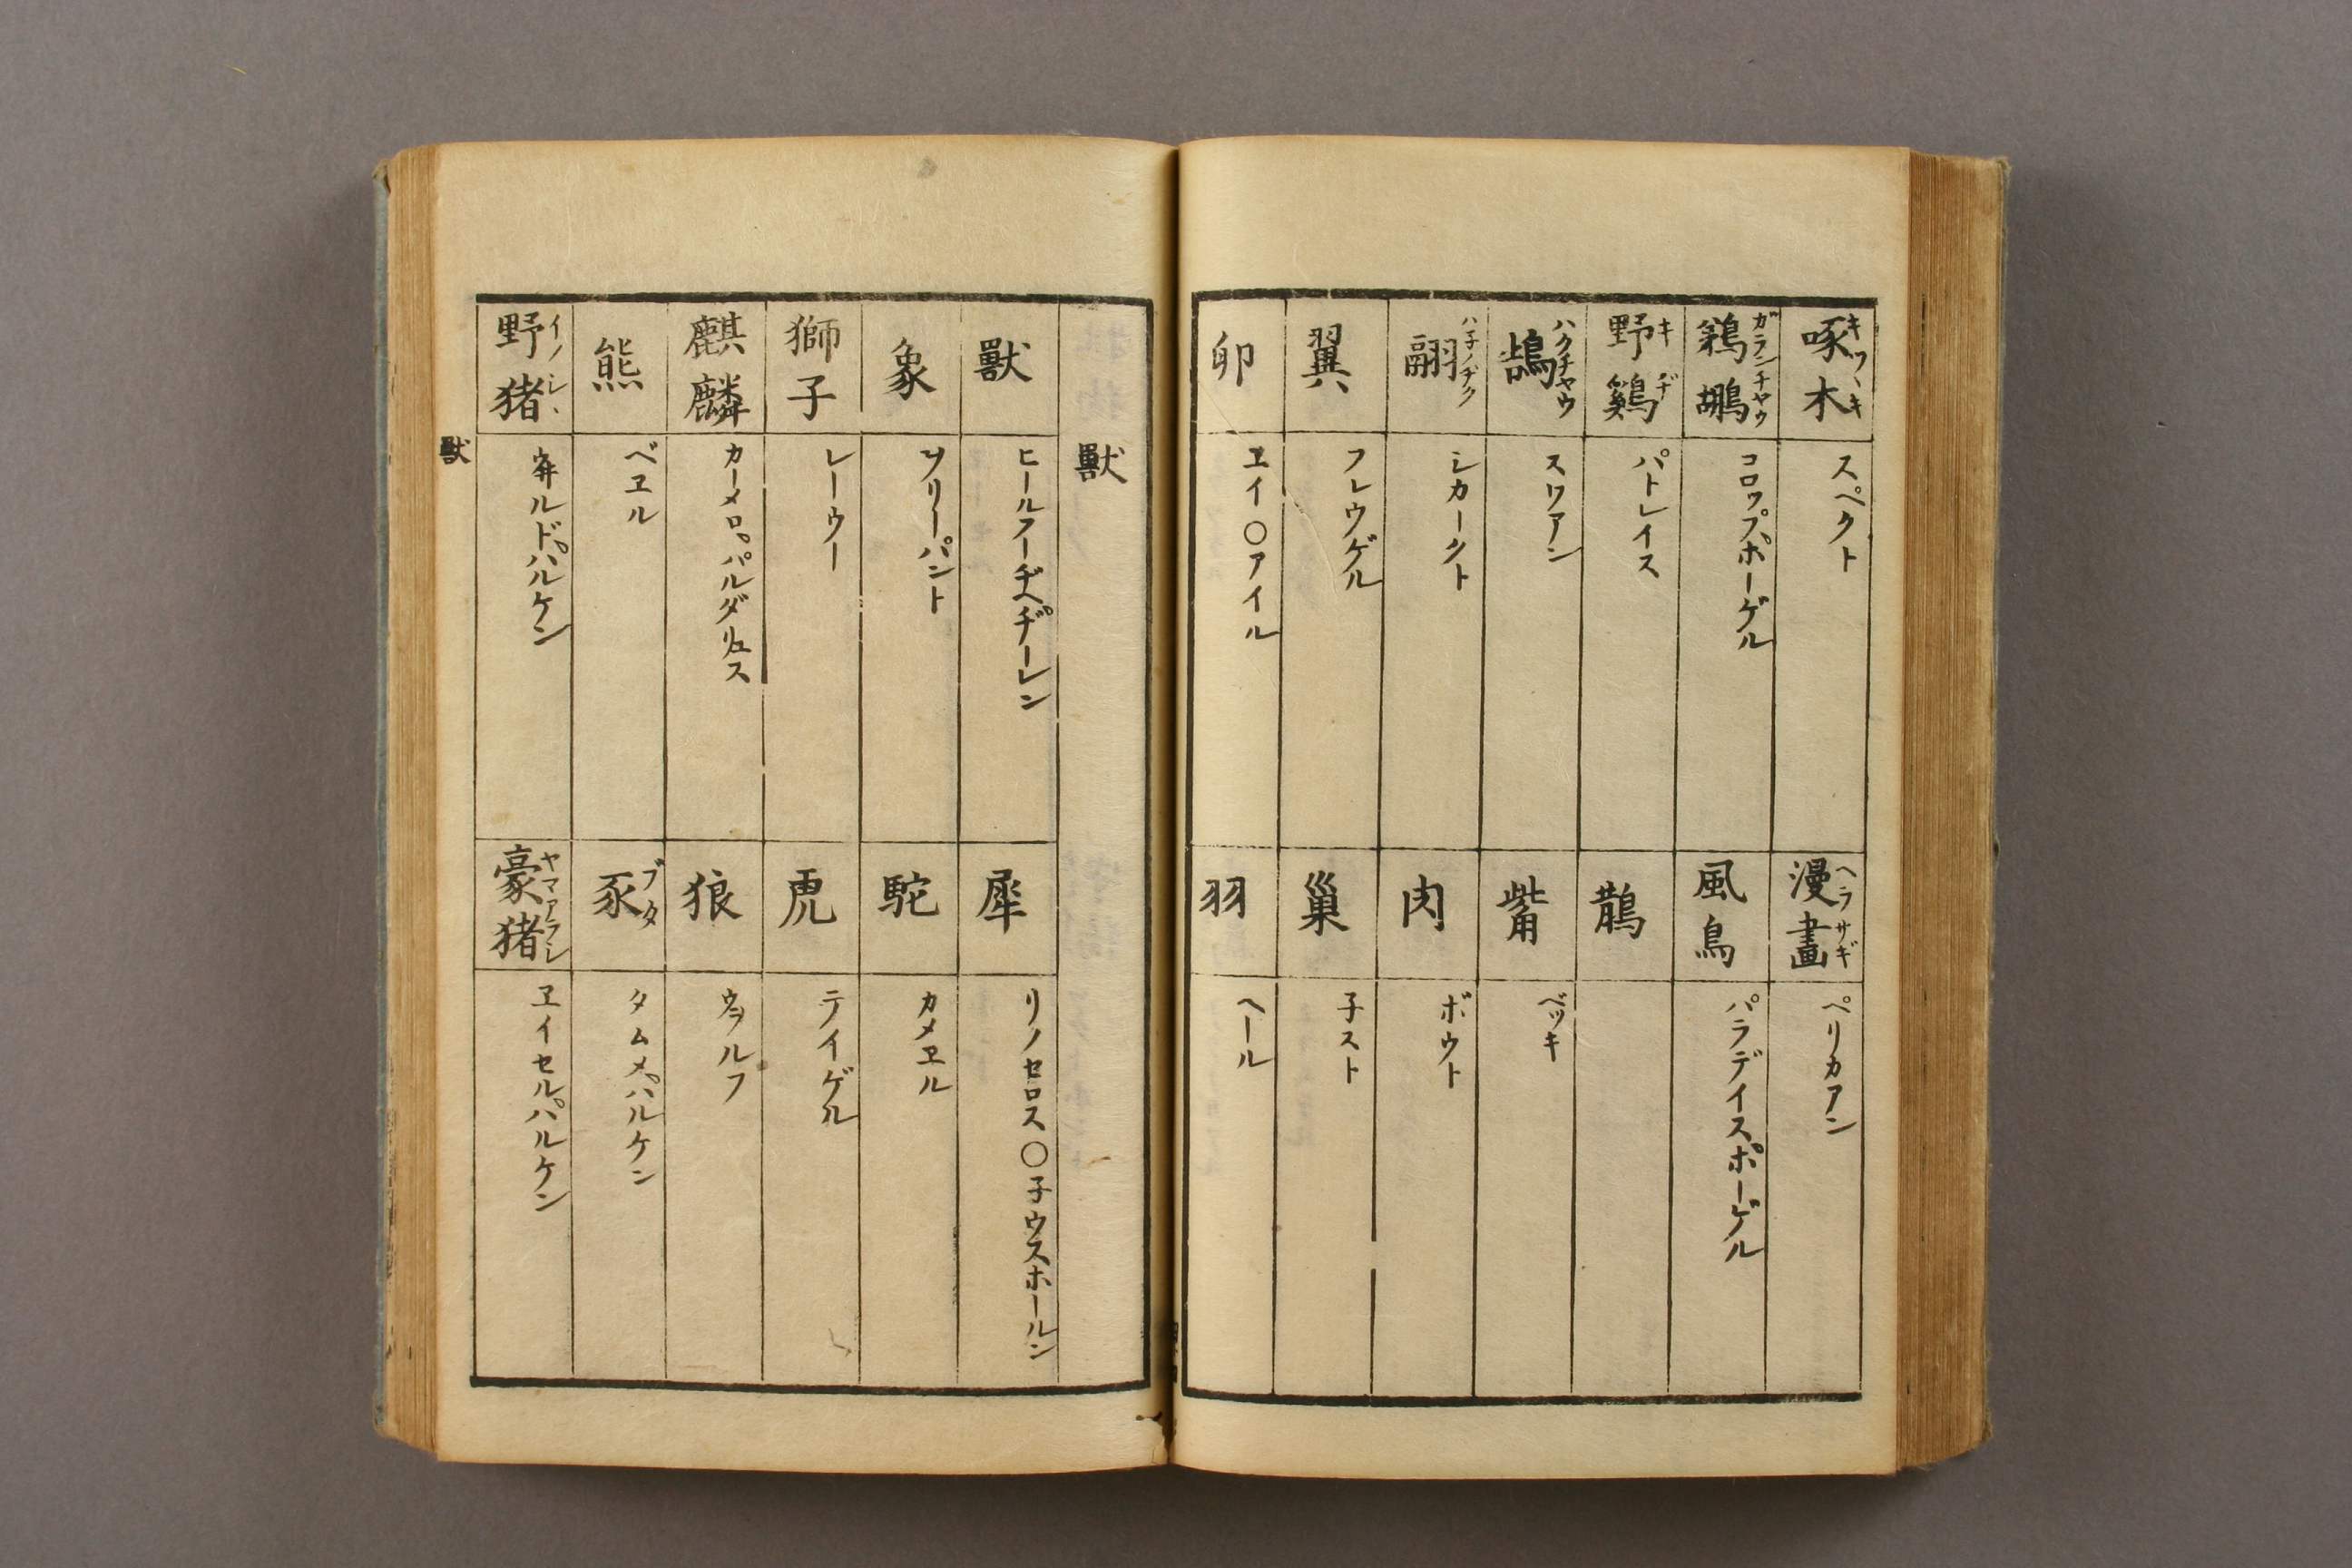 啄木 キツヽキ
スペクト
鵜鶘 ガランチヤウ
コロップポーゲル
野鷄 キヂ
パトレイス
鵠 ハクチヤウ
スワアン
翮 ハ子ノヂク
シカークト
翼
フレウゲル
卵
ヱイ〇アイル
漫畫 ヘラサギ
ペリカアン
風鳥
パラデイスポーゲル
鷸
觜
ベッキ
肉
ボウト
巢
子スト
羽
ヘール
獸
獸
ヒールフーチヘヂーレン
象
ヲリーパント
獅子
レーウー
麒麟
カーメロ。パルダリュス
熊
ベヱル
野猪 イノシヽ
ヰルドパルケン
犀
リノセロス〇子ウスホールン
駝
カメヱル
虎
テイゲル
狼
ヲルフ
豕 ブタ
タムメパルケン
豪猪 ヤマアラシ
ヱイセルパルケン
獸